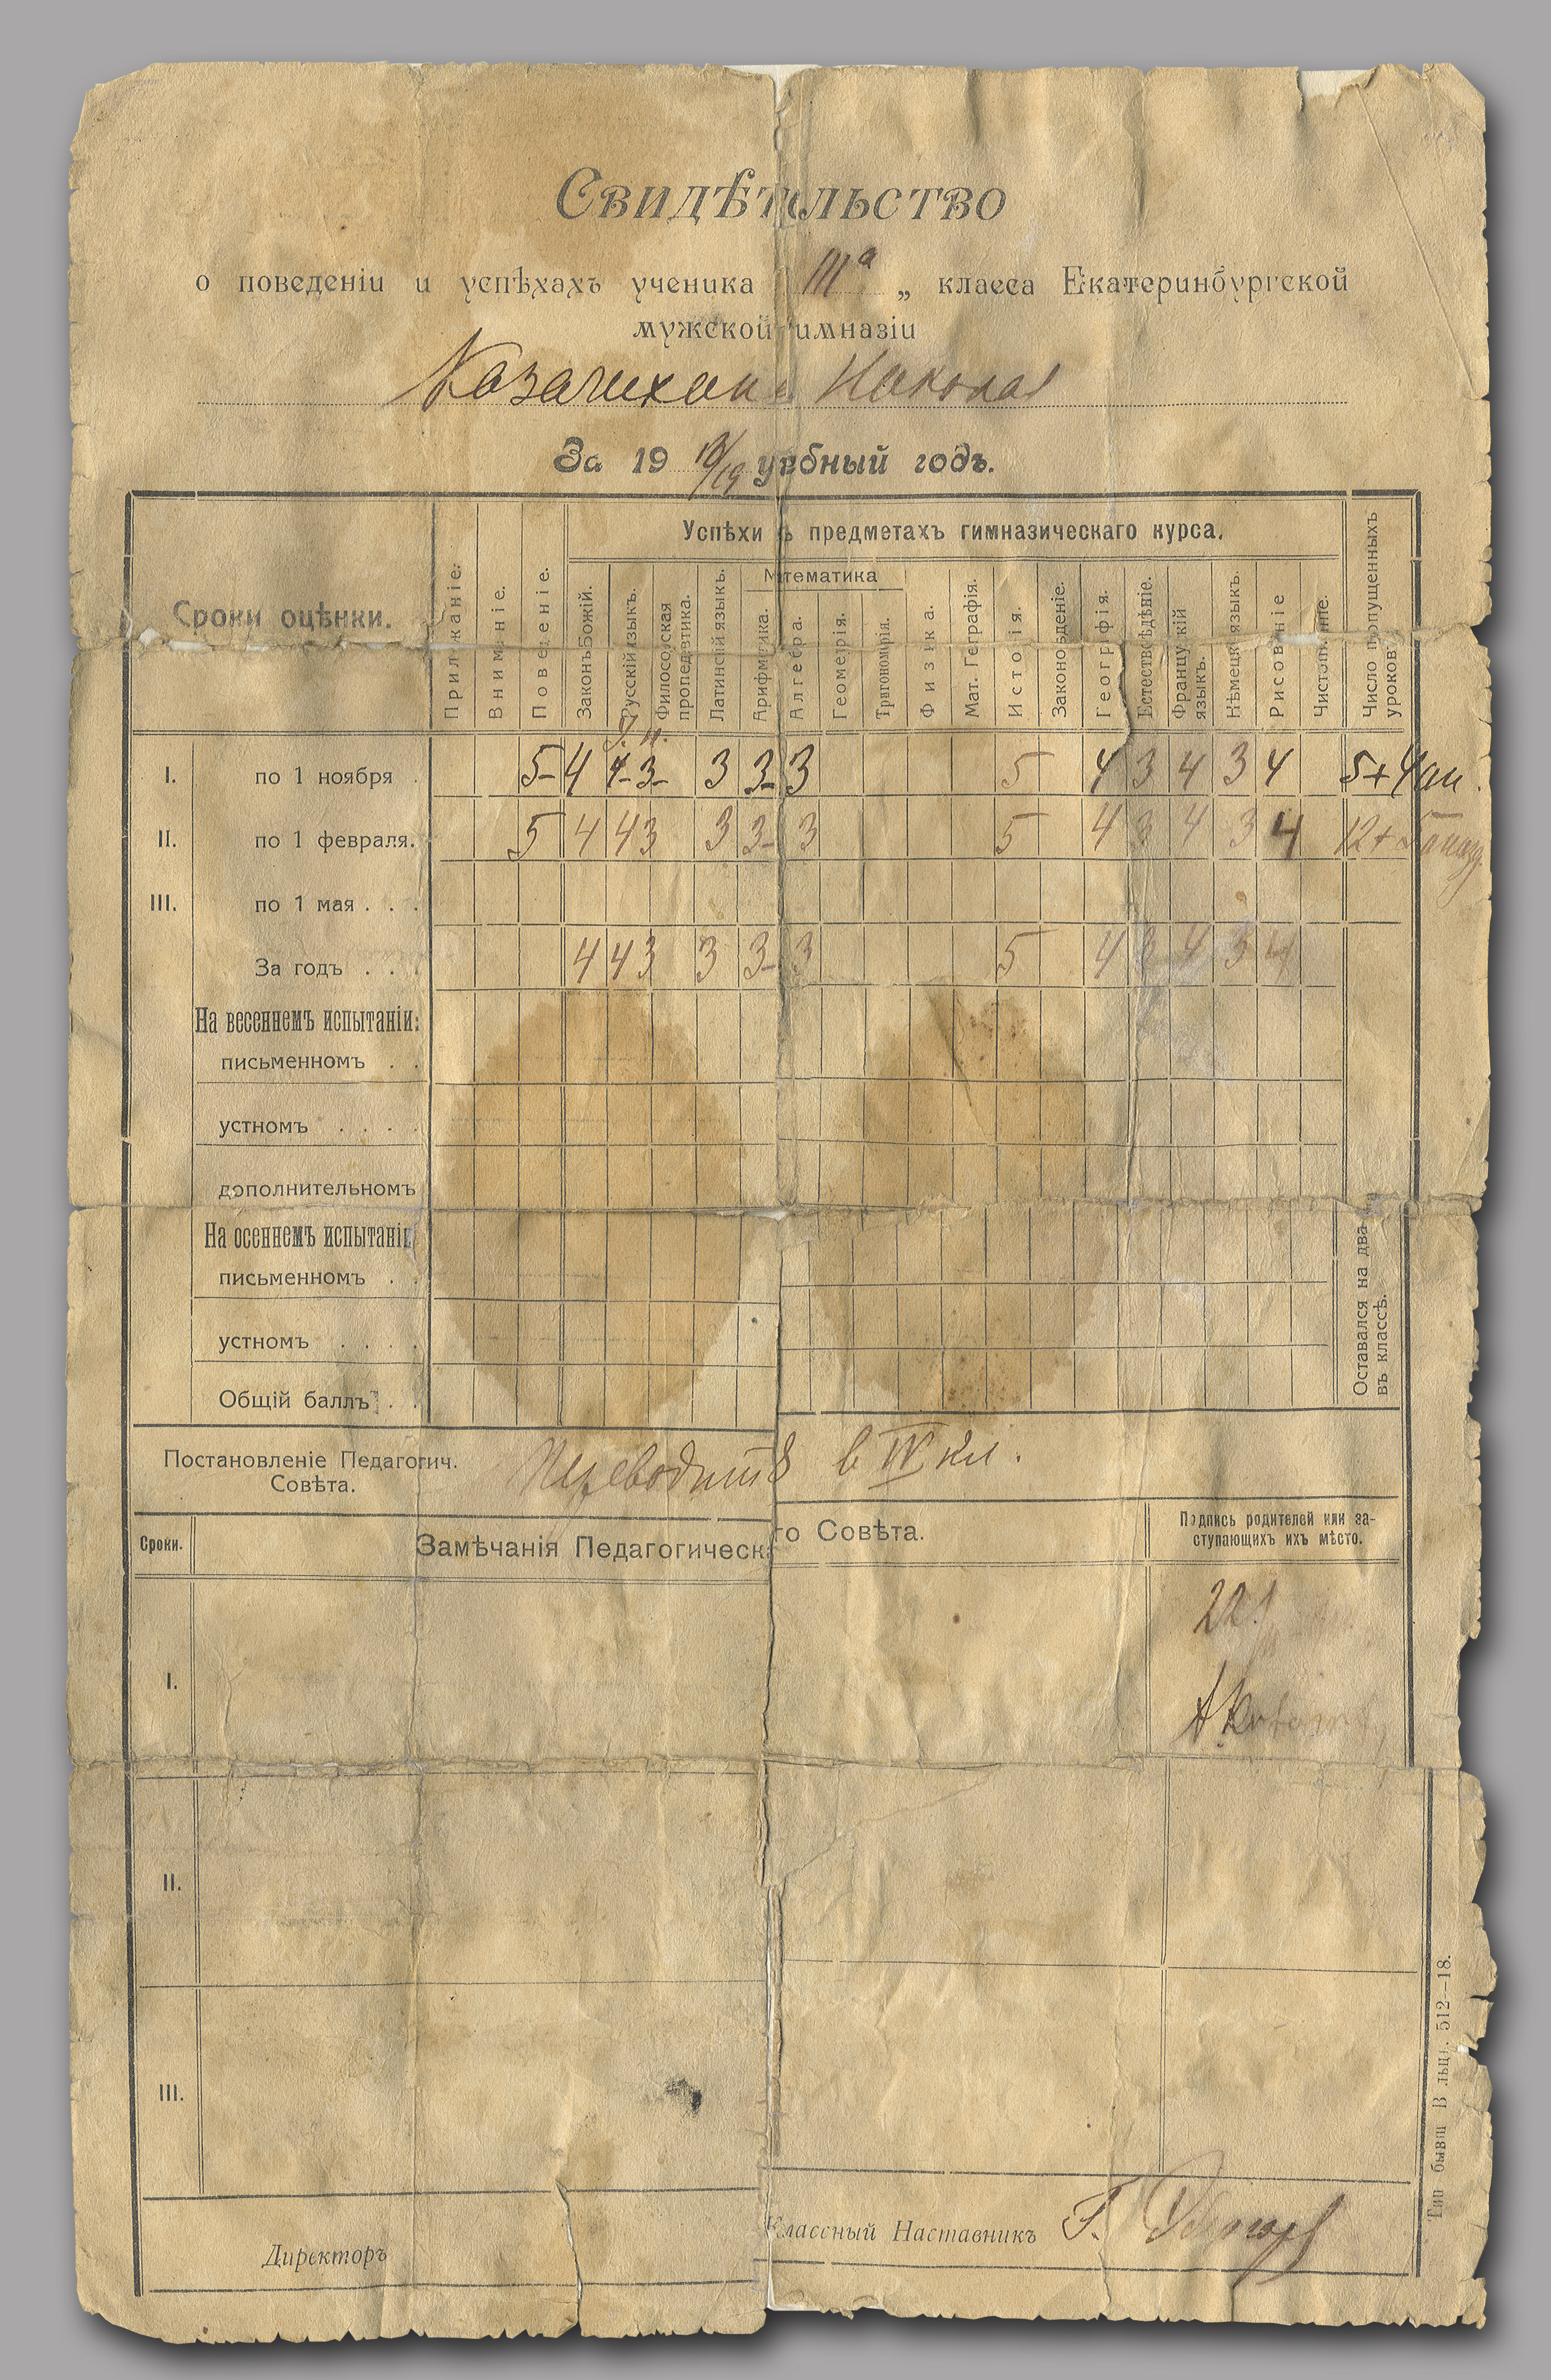 Свидѣтельство
о поведеніи и успѣхахъ ученика IIIа „ класса Екатеринбургской
мужской гимназіи
Николая
За 19 18/19 учебный годъ.
Сроки оцѣнки.
Прилежаніе.
Вниманіе.
Поведеніе.
Успѣхи въ предметахъ гимназическаго курса.
Законъ Божій.
Русскій языкъ.
Философская пропедевтика.
Латинскій языкъ.
Математика
Арифметика.
Алгебра.
Геометрія.
Тригонометрія.
Физика.
Мат. Географія.
Исторія.
Законовѣденіе.
Географія.
Естествовѣдѣніе.
Французскій языкъ.
Нѣмецкій языкъ.
Рисованіе
Чистописаніе.
Число пропущенныхъ уроковъ
I. по 1 ноября . 5- 4 4- 3- 3 3- 3 5 4 3 4 3 4 5+4
II. по 1 февраля. 5 4 4 3 3 3- 3 5 4 3 4 3 4 12+5
III. по 1 мая . . .
За годъ . . . 4 4 3 3 3- 3 5 4 3 4 3 4
На весеннемъ испытаніи:
письменномъ . .
устномъ . . . .
дополнительномъ
На осеннемъ испытаніи
письменномъ . .
устномъ . . . .
Общій баллъ . .
Оставался на два
въ классѣ.
Постановленіе Педагогич. Совѣта.
Переводится в IV кл.
Сроки.
Замѣчанія Педагогическаго Совѣта.
Подпись родителей или за-
ступающихъ ихъ мѣсто.
I.
22
II.
III.
Директоръ
Классный Наставникъ Г.
Тип бывш В 512—18.